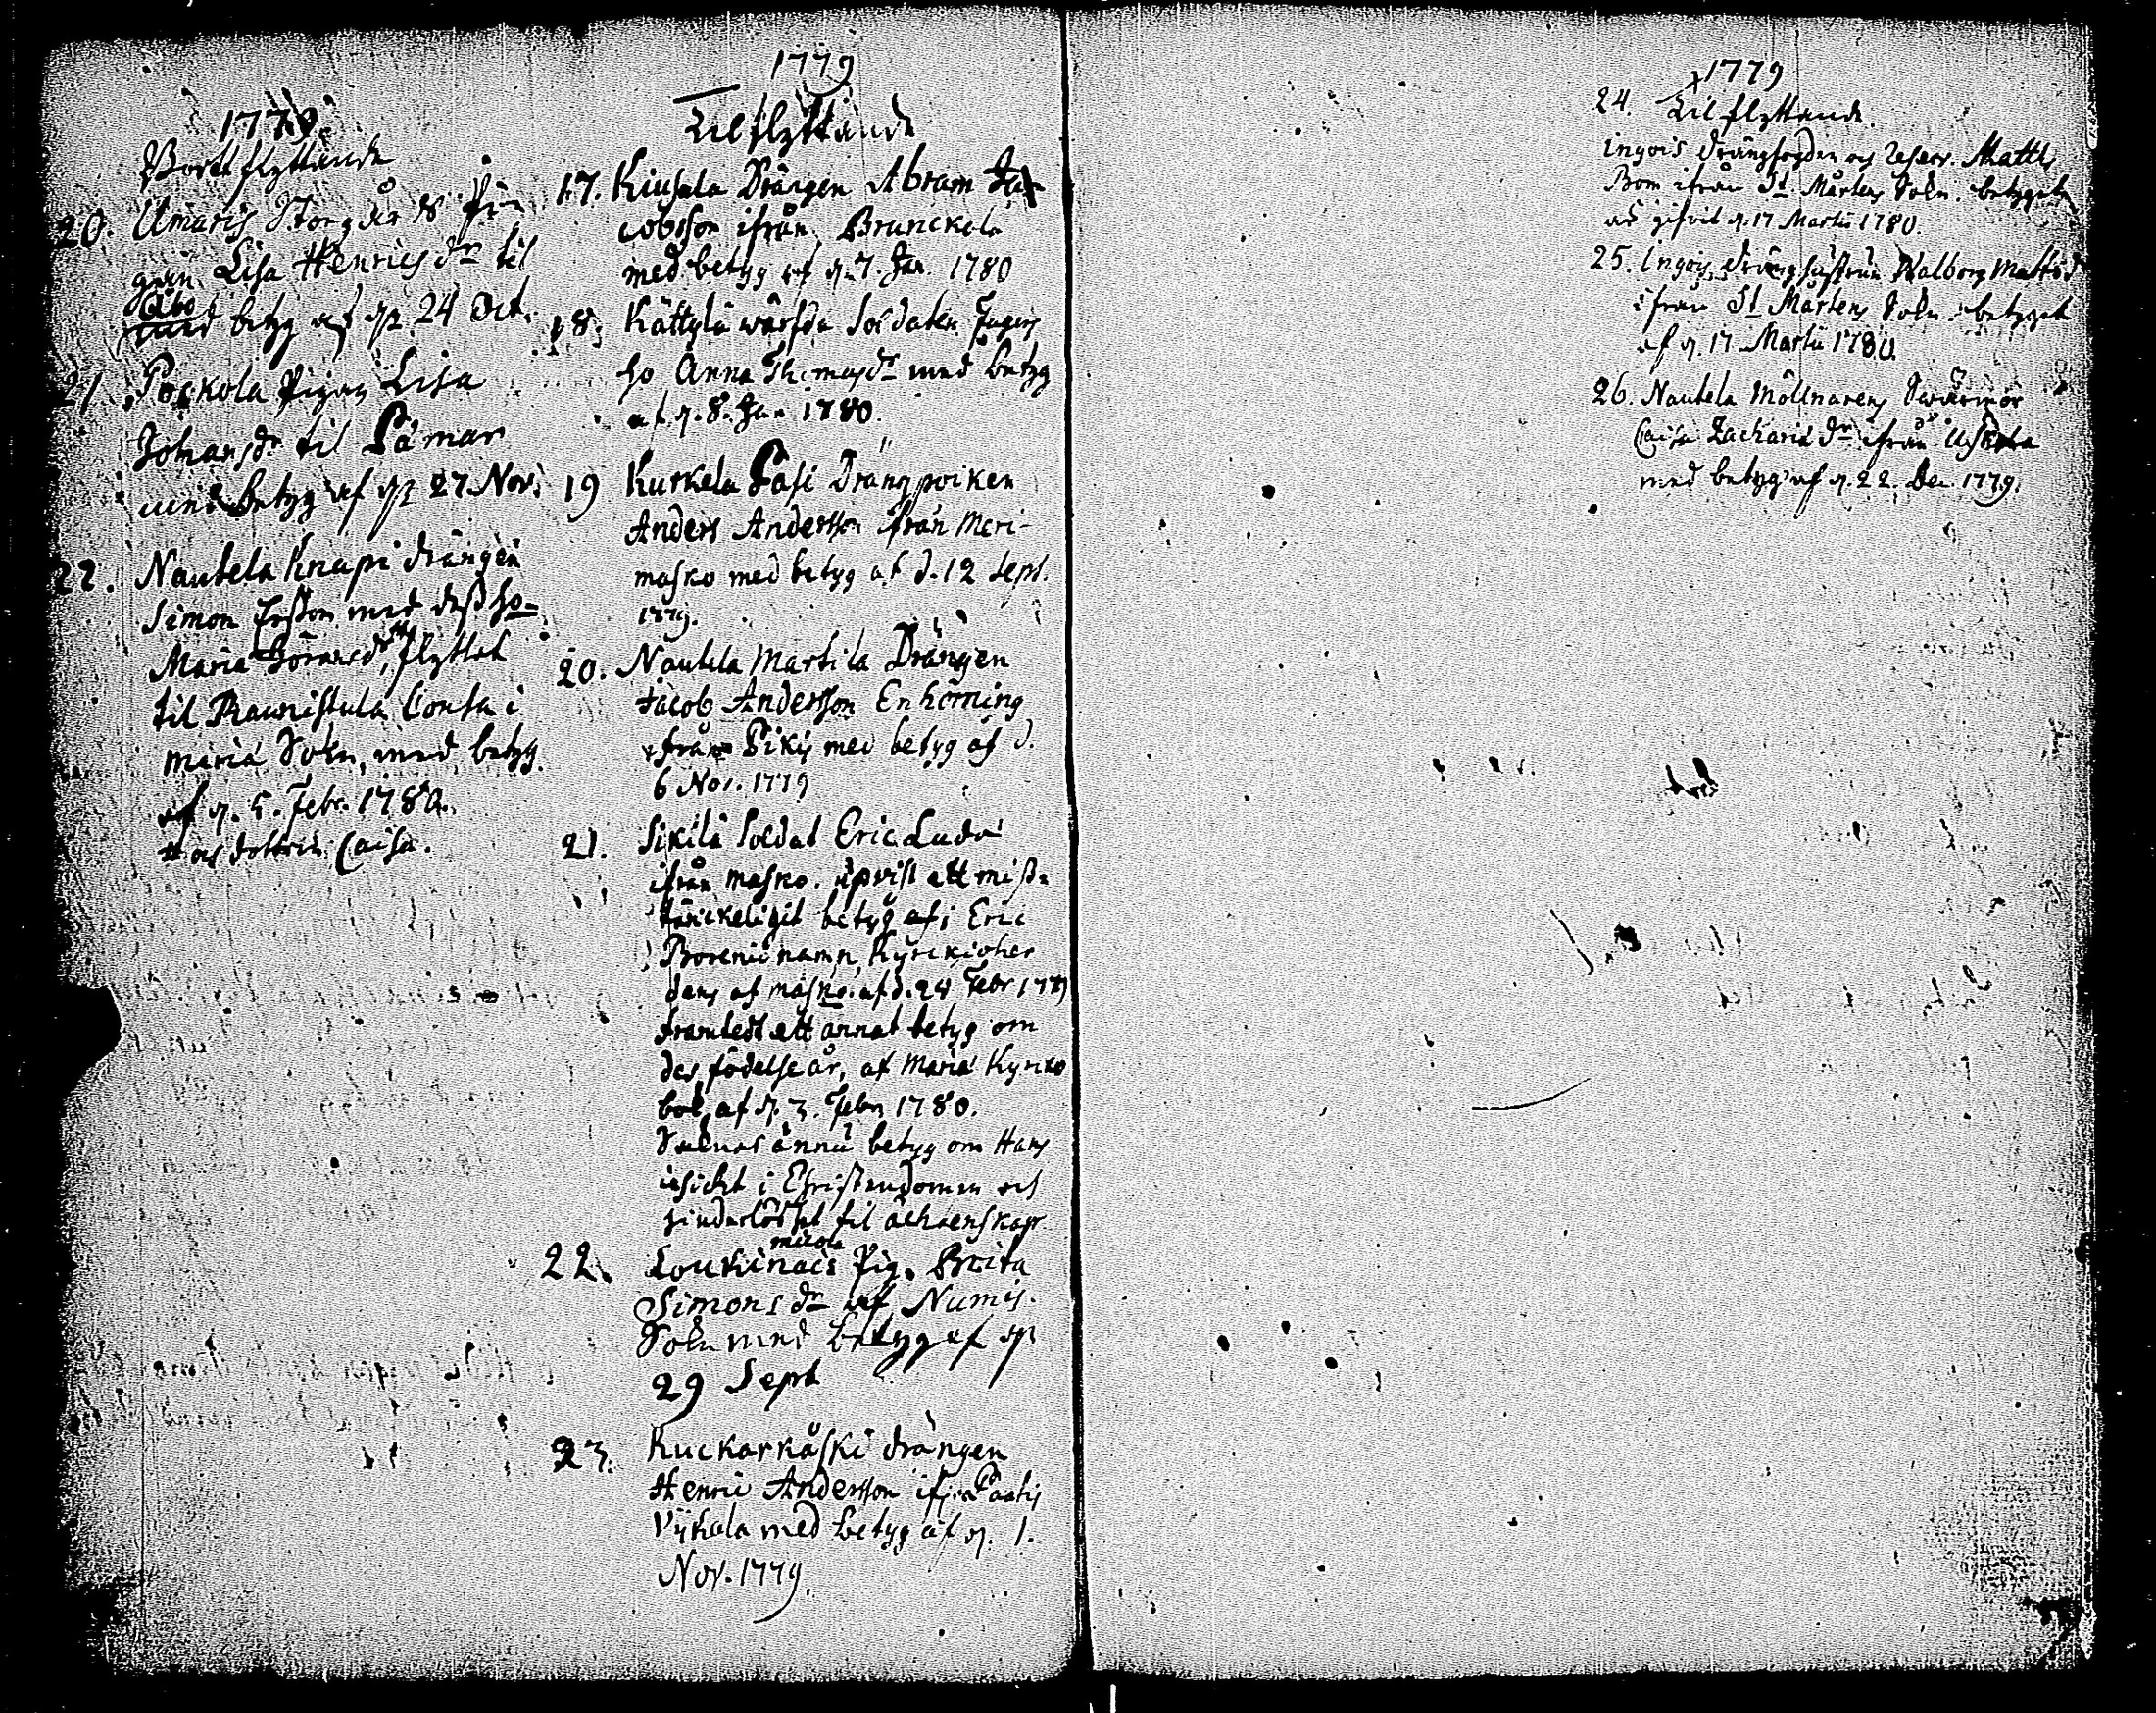 1779
Bortflyttande
20. Umaris Storgårds Pi-
gan Lisa Henrics dr til
Åbo
med betyg af d. 24 Oct.
21. Pockola Pigan Lisa
Johansdr til Pämar
med betyg af d. 27 Nov.
22. Nautela Knapi drängen
Simon Ersson med dess ho-
Maria Göransdr, flyttat
til Raunistula Consa i
Mariä Sokn, med betyg
af d. 5. Febr. 1780.
och dottren Caisa.
1779
Tilflyttande
17. Kiusala Drängen Abram Ja-
cobsson ifrån Brunckola
med betyg af d. 7. Jan. 1780
18. Kättylä wärfda Soldaten
ho Anna Thomasdr med betyg
af d. 8. Jan 1780.
19 Kurkela Pasi Drängpoiken
Anders Andersson ifrån Meri-
masko med betyg af d. 12 Sept.
1779.
20. Nautela Martila Drängen
Jacob Andersson Enhörning
ifrån Pikis med betyg af d.
6 Nov. 1779
21. Sikilä Soldat Eric
ifrån Masko. upvist ett miss-
tänckeligit betyg af Eric
namn, Kyrckioher
dens af Masko. af d. 24 Febr 1779
framtedt ett annat betyg om
des födelse år, af Mariä Kyrko
bok, af d. 3. Febr 1780.
Saknas ännu betyg om Hans
insickt i Christendomen och
hinderlöshet til ächtenskap
22. Loukinais
micola
Pig. Brita
Simons dr af Numis.
Sokn med betyg af d.
29 Sept
23. Kuckarkåski drängen
Henric Andersson ifrån
med betyg af d. 1.
Nov. 1779.
1779
24. Tilflyttande
Ingois Drängfogden och Reserv. Matth
Bom ifrån St Mårtens Sokn. betyget
är gifvit d. 17 Martii 1780.
25. Ingois, Dränghustrun Walborg Mattsdr
ifrån St Mårtens Sokn. betyget
af d. 17 Martii 1780.
26. Nautela Möllnarens Swärmor
Caisa Zachariä dr ifrån Uskela
med betyg af d. 22. Dec. 1779.